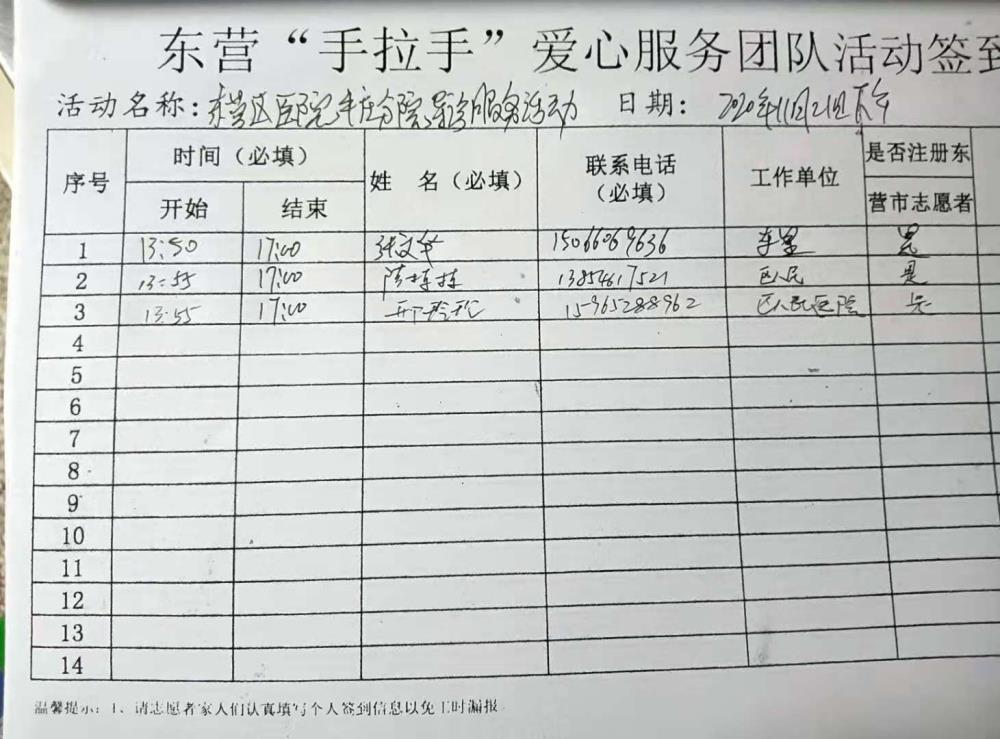 东营“手拉手”爱心服务团队活动签到
活动名称：东营区医院牛庄分院导诊服务活动 日期：2020年11月21日下午
序号 时间（必填） 姓 名（必填） 联系电话（必填） 工作单位 是否注册东营市志愿者
开始 结束
1 13:50 17:00 张文华 15066069636 是
2 13:55 17:00 13854617521 区人民 是
3 13:55 17:00 15965288962 区人民医院 是
4
5
6
7
8
9
10
11
12
13
14
温馨提示：1、请志愿者家人们认真填写个人签到信息以免工时漏报